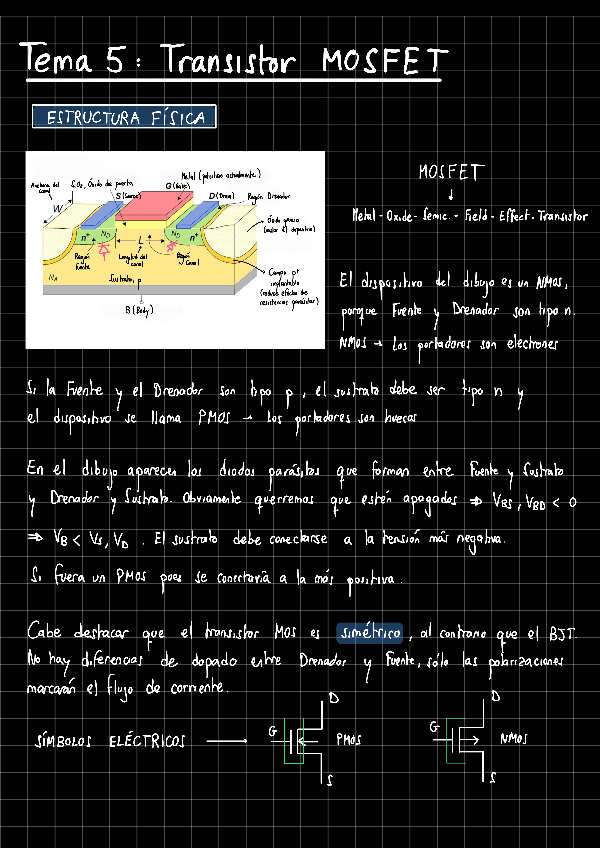 Tema 5: Transistor MOSFET
ESTRUCTURA FÍSICA
Anchura del canal
W
SiO2, Óxido de puerta
S (Source)
Metal (polisilicio actualmente)
G (Gate)
D (Drain)
Región Drenador
n+
ND
L
ND
n+
Óxido grueso
Región fuente
Longitud del canal
Región Canal
NA
Sustrato, p
Campo p+ implantable
(reduce efectos de resistencias parásitas)
B (Body)
MOSFET
↓
Metal - Oxide - Semic. - Field - Effect - Transistor
El dispositivo del dibujo es un NMOS,
porque Fuente y Drenador son tipo n.
NMOS → Los portadores son electrones
Si la Fuente y el Drenador son tipo p, el sustrato debe ser tipo n y
el dispositivo se llama PMOS → Los portadores son huecos
En el dibujo aparecen los diodos parásitos que forman entre Fuente y Sustrato
y Drenador y Sustrato. Obviamente querremos que estén apagados ⇒ VBS, VBD < 0
⇒ VB < VS, VD. El sustrato debe conectarse a la tensión más negativa.
Si fuera un PMOS pues se conectaría a la más positiva.
Cabe destacar que el transistor MOS es simétrico, al contrario que el BJT.
No hay diferencias de dopado entre Drenador y Fuente, sólo las polarizaciones
marcarán el flujo de corriente.
SÍMBOLOS ELÉCTRICOS →
D
G
PMOS
S
D
G
NMOS
S